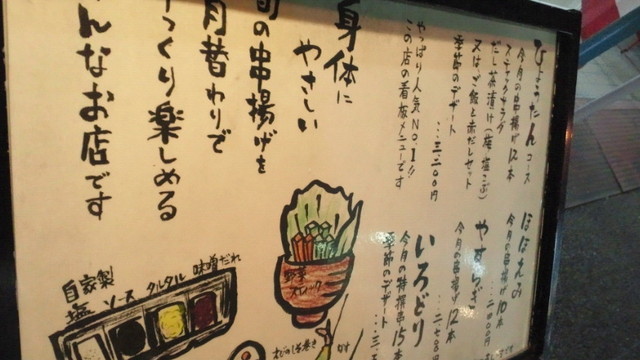 ひょうたんコース
今月の串揚げ12本
スティックサラダ
だし茶漬け(梅塩こぶ)
又はご飯と赤だしセット
季節のデザート
…三二〇〇円
やっぱり人気No.1!!
この店の看板メニューです
ほほえみ
今月の串揚げ10本
二〇〇〇円
やすらぎ
今月の串揚げ12本
いろどり
今月の特撰串15本
季節のデザート
身体に
やさしい
旬の串揚げを
月替わりで
っくり楽しめる
んなお店です
野菜
スティック
自家製
塩
ソース
タルタル
味噌だれ